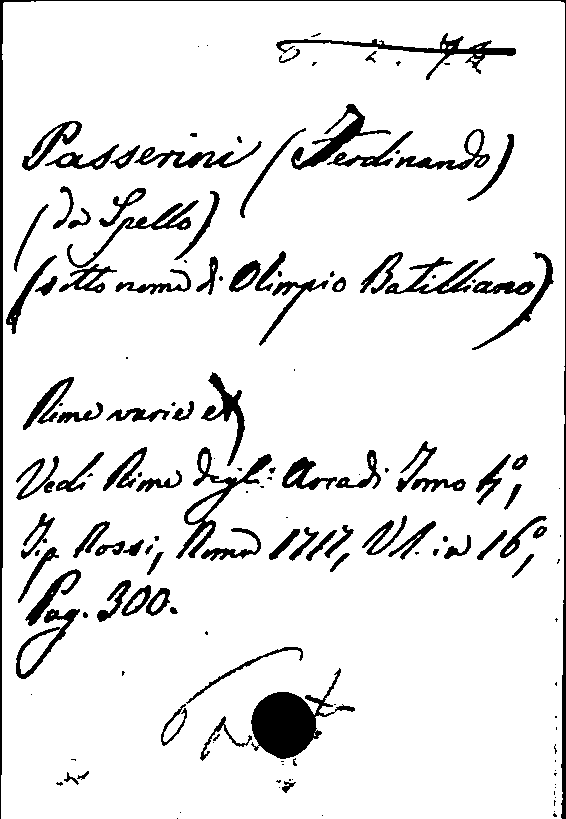 8. 2. 72
Passerini (Ferdinando)
(da Spello)
(sotto nome di Olimpio Batilliano)
Rime varie
Vedi Rime degli Arcadi Tomo 4°,
Tip. Rossi, Roma 1717, V 1. in 16°,
Pag. 300.